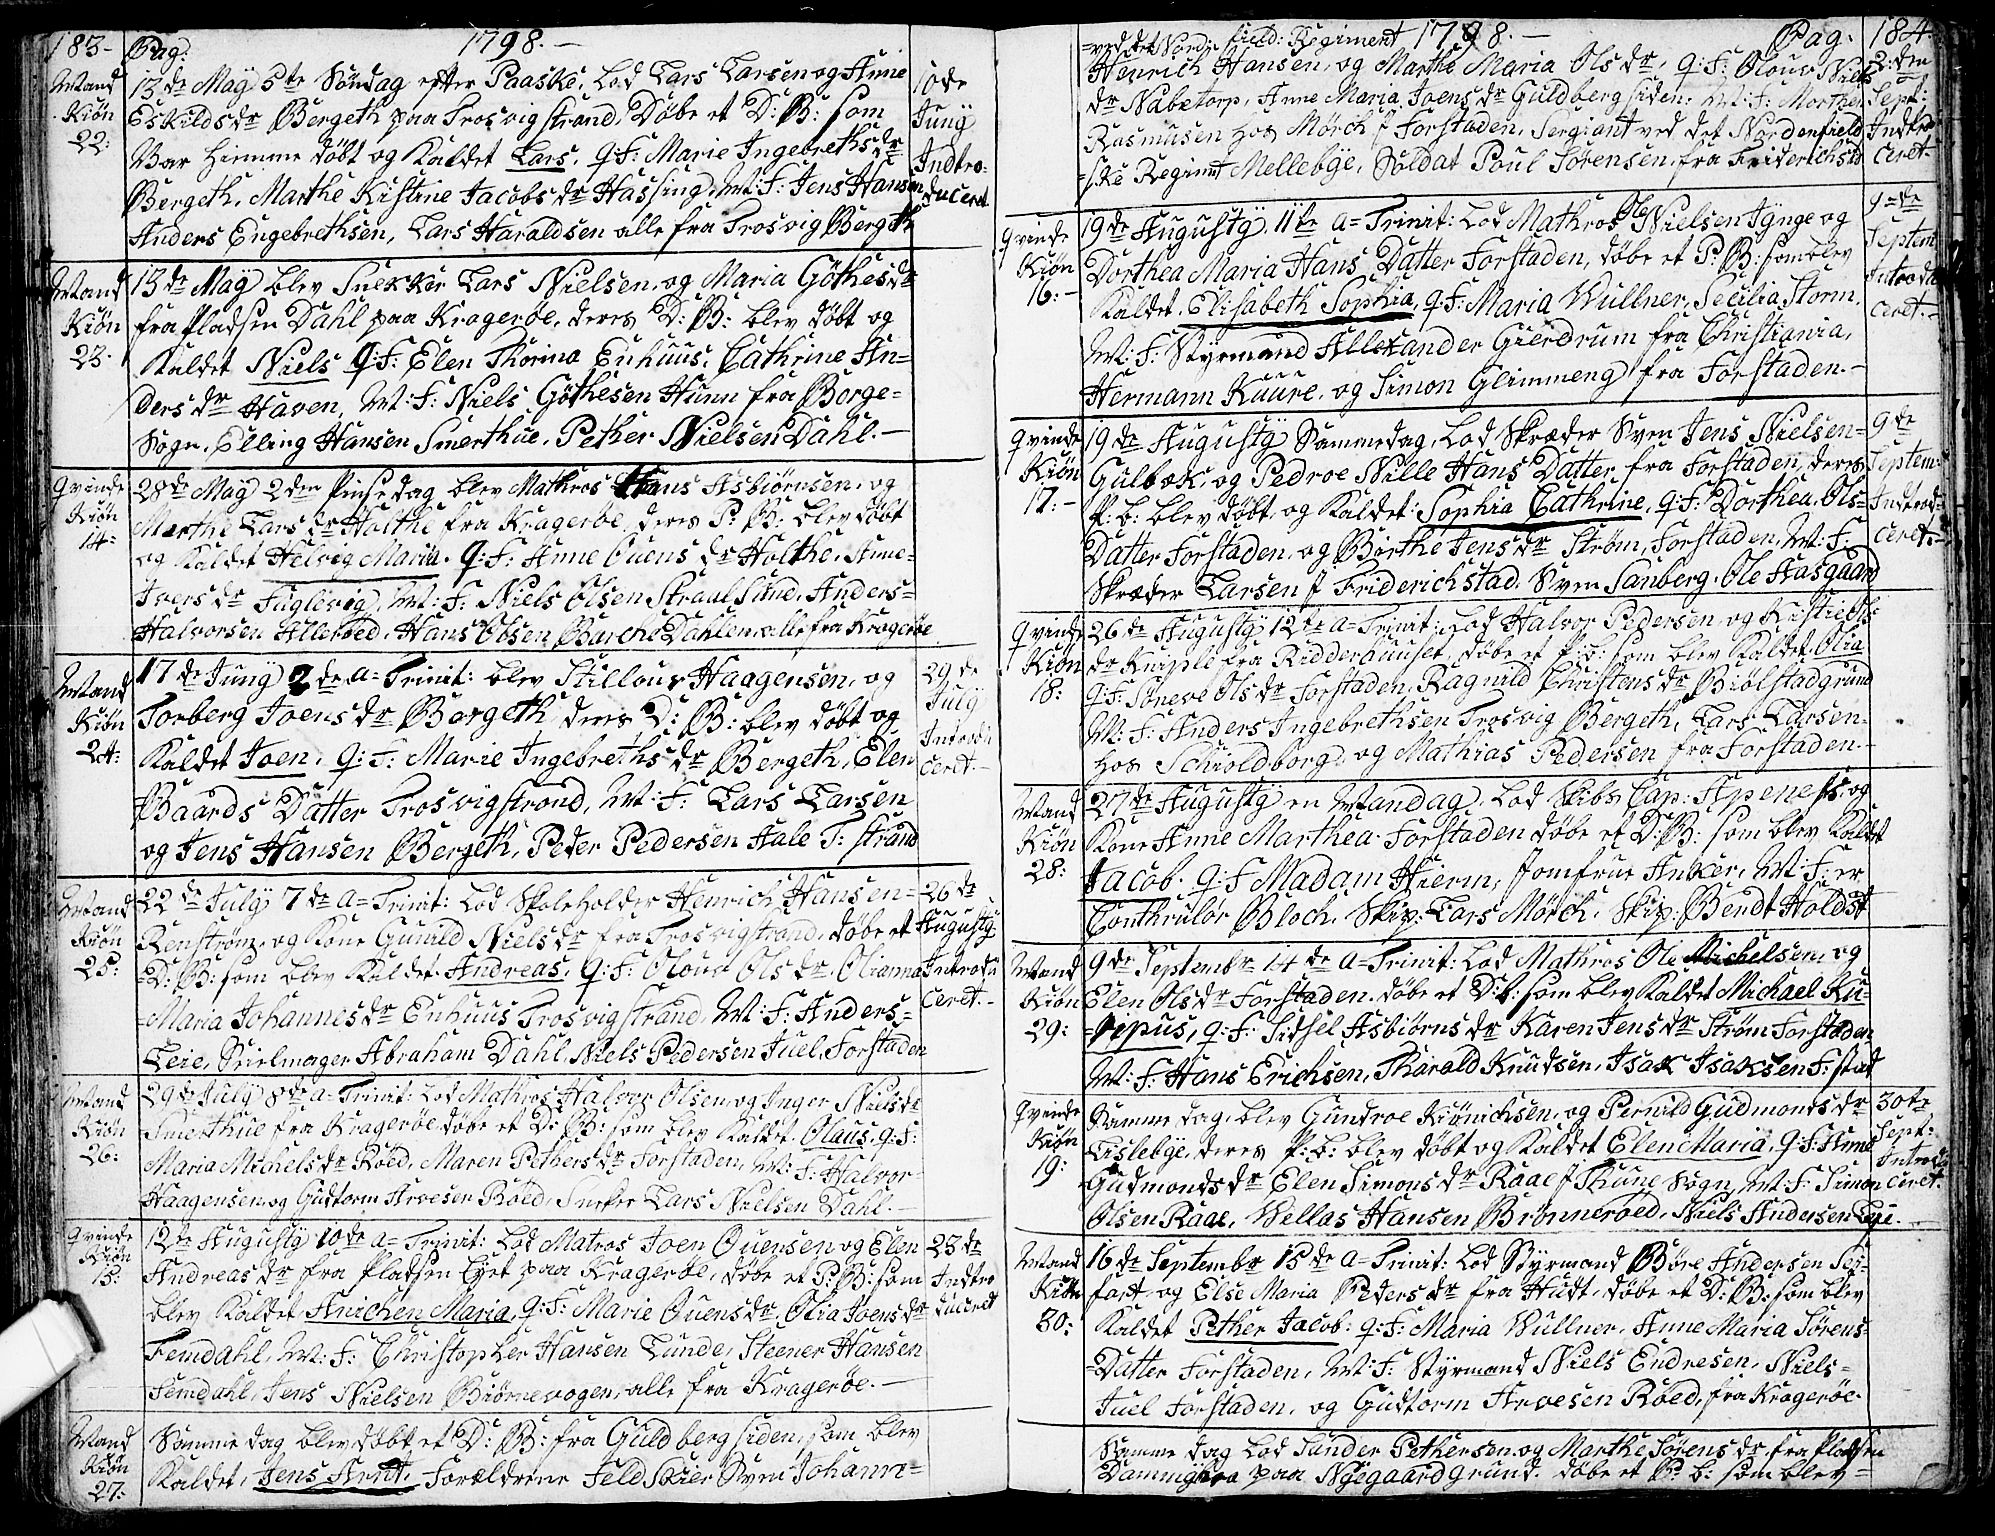 183- Pag: 1798.-
Mand Kiøn 22:
13de May 5te Søndag efter Paaske, Lod Lars Larsen og Anne
Eskildsdr Bergeth paa Trosvigstrand, Døbe et D: B: som
Var hiemme døbt og Kaldet Lars. Q: F: Marie Ingebrethsdr
Bergeth, Marthe Kistine Jacobsdr Hassing, M: F: Jens Hansen
Anders Engebrethsen, Lars Haraldsen alle fra Trosvig Bergeth
10de Juny Indtroduceret
Mand Kiøn 23.
13de May blev Snekker Lars Nielsen, og Maria Göthesdr
fra Pladsen Dahl paa Kragerøe, deres D: B: blev døbt og
Kaldet Niels Q: F: Elen Thorina Enhuus, Cathrine An-
dersdr Haven, M: F: Niels Göthesen Hunn fra Borge-
Sogn, Elling Hansen Smerthue, Pether Nielsen Dahl.-
Qvinde Kiøn 14:
28de May 2den Pinsedag blev Mathros Hans Asbiørnsen, og
Marthe Larsdr Holthe fra Kragerøe, deres P: B: blev døbt
og Kaldet Helvig Maria. Q: F: Anne Ouensdr Holthe, Anne-
Iversdr Fuglevig, M: F: Niels Olsen Straalsund, Anders-
Halvorsen Allerøed, Hans Olsen Barch Dahlen alle fra Kragerøe
Mand Kiøn 24:
17de Juny 2de a= Trinit: blev Stillouv Haagensen, og
Torberg Joensdr Bergeth, deres D: B: blev døbt og
Kaldet Joen, Q: F: Marie Ingebrethsdr Bergeth, Elen
Baards Datter Trosvigstrond, M: F: Lars Larsen
og Jens Hansen Bergeth, Peder Pedersen Hale T: strand
29de July Introduceret.-
Mand Kiøn 25:
22de July 7de a= Trinit: Lod Skoleholder Henrich Hansen-
Renstrøm, og Kone Gunild Nielsdr fra Trosvigstrand, døbe et
D: B: som blev Kaldet Andreas. Q: F: Olouv Olsdr. Olianna
=Maria Johannesdr Enhuus Trosvigstrand, M: F: Anders-
Leie, Seielmager Abraham Dahl, Niels Pedersen Juel, Forstaden
26de Augusty Introduceret.-
Mand Kiøn 26:
29de July 8de a= Trinit: Lod Mathros Halvor Olsen, og Inger Nielsdr
Smerthue fra Kragerøe, døbe et D: B: som blev Kaldet Olaus, q: F:
Maria Michelsdr Røed, Maren Pethersdr Forstaden, M: F: Halvor-
Haagensen, og Gudtorm Arvesen Røed, Sneker Lars Nielsen Dahl.-
Qvinde Kiøn 15:
12te Augusty 10de a= Trinit: Lod Matros Joen Ouensen og Elen
Andreasdr fra Pladsen Lyet paa Kragerøe, døbe et P: B: som
blev Kaldet Anichen Maria, Q: F: Marie Ouensdr, Olia Joensdr
Femdahl, M: F: Christopher Hansen Lunde, Steener Hansen
Femdahl, Jens Nielsen Biørnevogen, alle fra Kragerøe.-
23de Indtroduceret
Mand Kiøn 27:
Samme dag blev døbt et D: B: fra Guldbergsiden, som blev
Kaldet, Jens Arnt. Forældrene Feldskier Sven Johann=
=ved det Nord: field: Regiment 1798.- Pag: 184
Henrich Hansen, og Marthe Maria Olsdr, q: F: Olouv Niels
dr Nabetorp, Anne Maria Joensdr Guldbergsiden. M: F: Morthen
Rasmusen hos Mørch f Forstaden, Sergiant ved det Nordenfield
=ske Regimt Mellebye, Soldat Poul Sørensen fra Friderichstd
2:den Sept: Indtroceret.-
Qvinde Kiøn 16:-
19de Augusty, 11te a= Trinit: Lod Mathros Ole Nielsen Tynge og
Dorthea Maria Hans Datter Forstaden, døbe et P: B: som blev
Kaldet. Elisabeth Sophia, q: F: Maria Wullner, Secilia Storm.
M: F: Styrmand Allexander Gierdrum fra Christiania,
Hermann Kuure, og Simon Glimmeng fra Forstaden.-
9=de Septem Introduceret.-
Qvinde Kiøn 17:-
19de Augusty Sammedag, Lod Skræder Sven Jens Nielsen=
Gulbæk, og Pedroe Nille Hans Datter fra Forstaden, deres
P: b: blev døbt, og Kaldet: Sophia Cathrine, q: F: Dorthea Ols-
Datter Forstaden, og Birthe Jensdr Strøm, Forstaden, M: F.
Skræder Larsen f Friderichstad. Sven Sanberg. Ole Hasgaard
9de Septem: Indtrodceret.-
Qvinde Kiøn 18:
26de Augusty 12te a= Trinit: Lod Halvor Pedersen og Kistie Ols
dr Kniple fra Ridderhuuset, døbe et P: b: som blev Kaldet Olia
q: F: Søneve Olsdr Forstaden, Ragnild Christensdr Biølstadgrund
M: F: Anders Ingebrethsen Trosvig Bergeth, Lars Larsen-
hos Schioldborg, og Mathias Pedersen fra Forstaden.-
Mand Kiøn 28:
27de Augusty en Mandag, Lod Skibs Cap: Apenes, og
Kone Anne Marthea Forstaden døbe et D: B: som blev Kaldet
Jacob. q: F Madam Hierm, Jomfrue Anker, M: F: er
Conthrulør Bloch, Skip: Lars Mörch, Skip: Bendt Holdst
Mand Kiøn 29:
9de Septembr 14de a= Trinit: Lod Mathros Ole Michelsen, og
Elen Olsdr Forstaden, døbe et D: b: som blev Kaldet Michael Ru-
=pipus, q: F: Sidsel Asbiørnsdr Karen Jensdr Strøm Forstaden
M: F: Hans Erichsen, Tharald Knudsen, Isak Isaksen F: stad
Qvinde Kiøn 19:
Samme dag, blev Gundroe Kiønichsen, og Pernild Gudmondsdr
Lislebye, deres P: b: blev døbt og Kaldet Elen Maria, q: F: Anne
Gudmondsdr Elen Simonsdr Raae f Thune Sogn, M: F: Simon
Olsen Raae, Wellas Hansen Brønnerøed, Niels Andersen Leje.-
30te Sept: Introduceret.
Mand Kiøn 30:
16de Septembr 15de a= Trinit: Lod Styrmand Böre Andersen Sei-
fart, og Else Maria Pedersdr fra Hudt, døbe et D: B: som blev
Kaldet Pether Jacob: q: F: Maria Wullner, Anne Maria Sørens-
=Datter Forstaden, M: F: Styrmand Niels Endresen, Niels-
Juel Forstaden, og Gudtorm Arvesen Røed, fra Kragerøe.
Samme dag Lod Sunder Pethersen, og Marthe Sörensdr fra Pladsen
Damminghra paa Nyegaard grund, døbe et P: b: som blev=